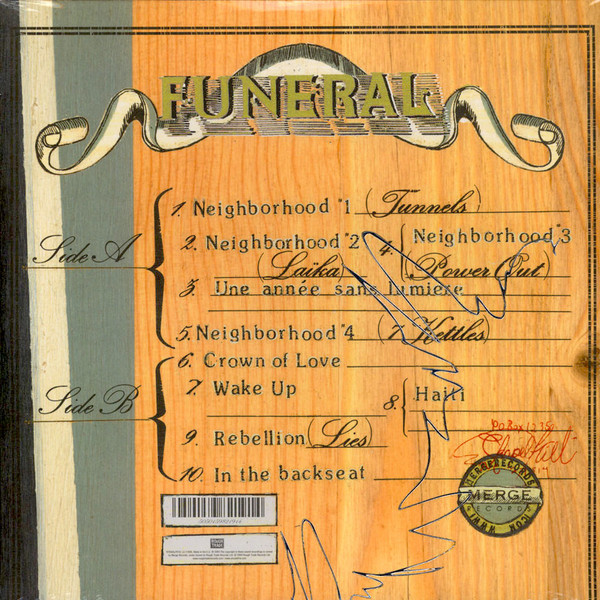 FUNERAL
Side A
1. Neighborhood #1 (Tünnels)
2. Neighborhood #2 (Laïka)
3. Une année sans lumiere
4. Neighborhood #3 (Power Out)
5. Neighborhood #4 (7 Kettles)
Side B
6. Crown of Love
7. Wake Up
8. Haïti
9. Rebellion (Lies)
10. In the backseat
P.O. Box 1235
Chapel Hill
MERGE
RECORDS